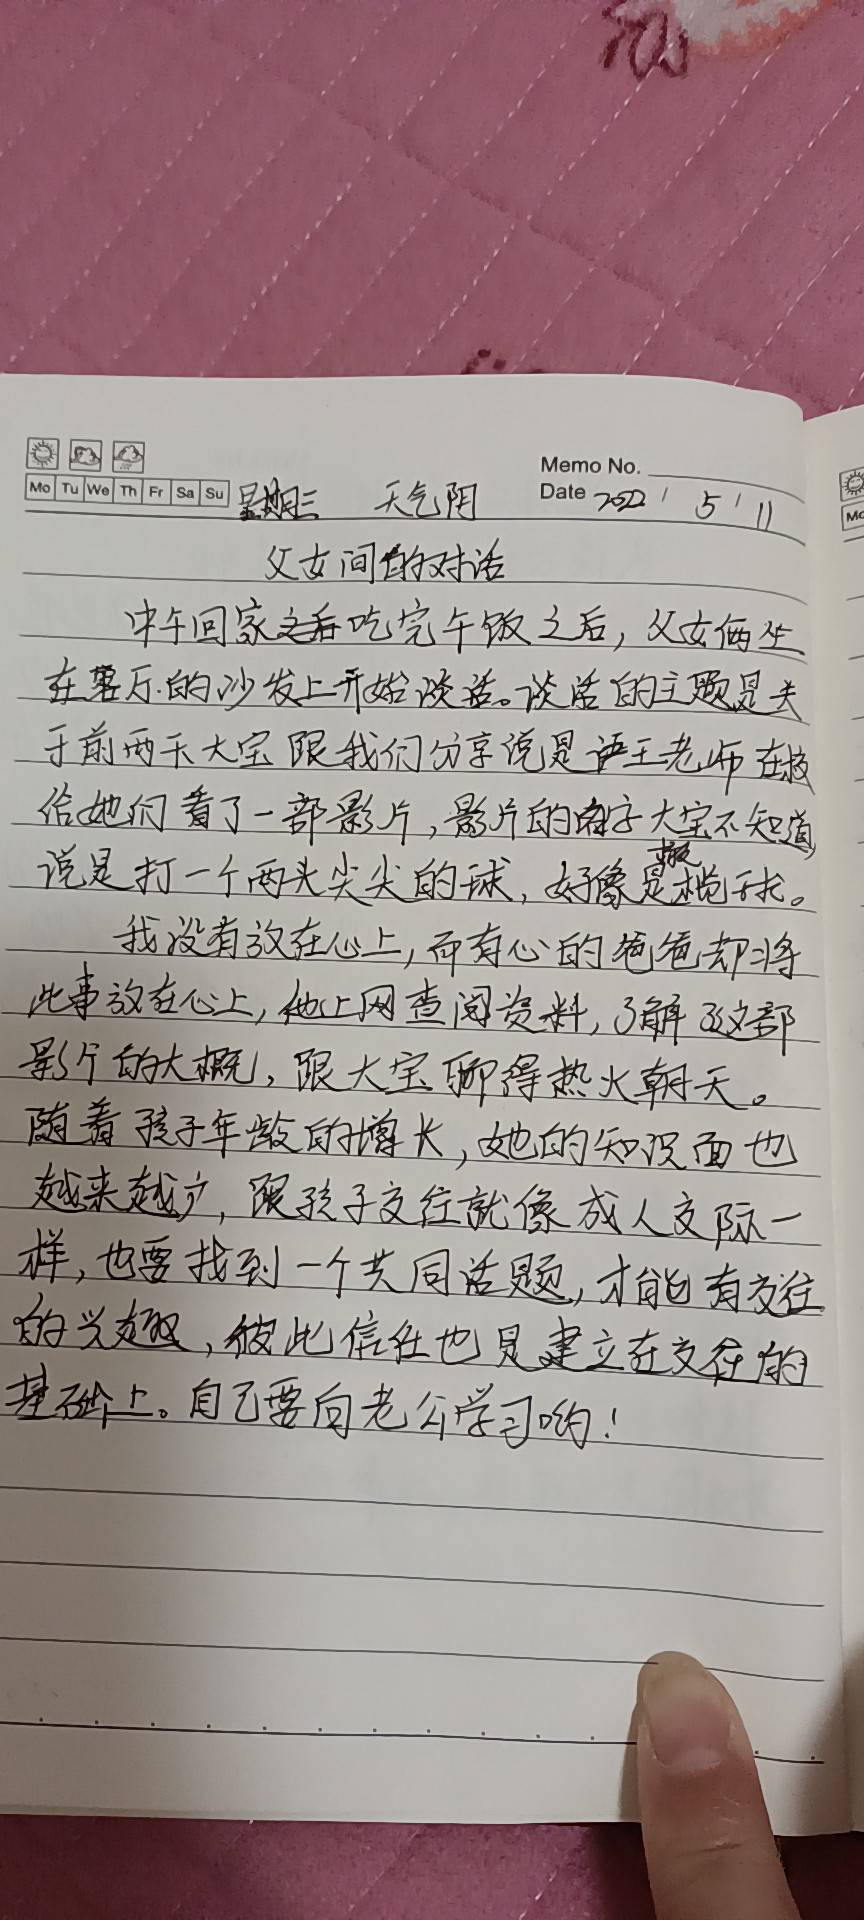 Memo No.
Mo Tu We Th Fr Sa Su 星期三 天气阴 Date 2022 / 5 / 11
父女间的对话
中午回家之后吃完午饭之后，父女俩坐
在客厅的沙发上开始谈话。谈话的主题是关
于前两天大宝跟我们分享说是语王老师在校
给她们看了一部影片，影片的名字大宝不知道，
说是打一个两头尖尖的球，好像是橄榄球。
我没有放在心上，而有心的爸爸却将
此事放在心上，他上网查阅资料，了解了这部
影片的大概，跟大宝聊得热火朝天。
随着孩子年龄的增长，她的知识面也
越来越广，跟孩子交往就像成人交际一
样，也要找到一个共同话题，才能有交往
的兴趣，彼此信任也是建立在交往的
基础上。自己要向老公学习哟！